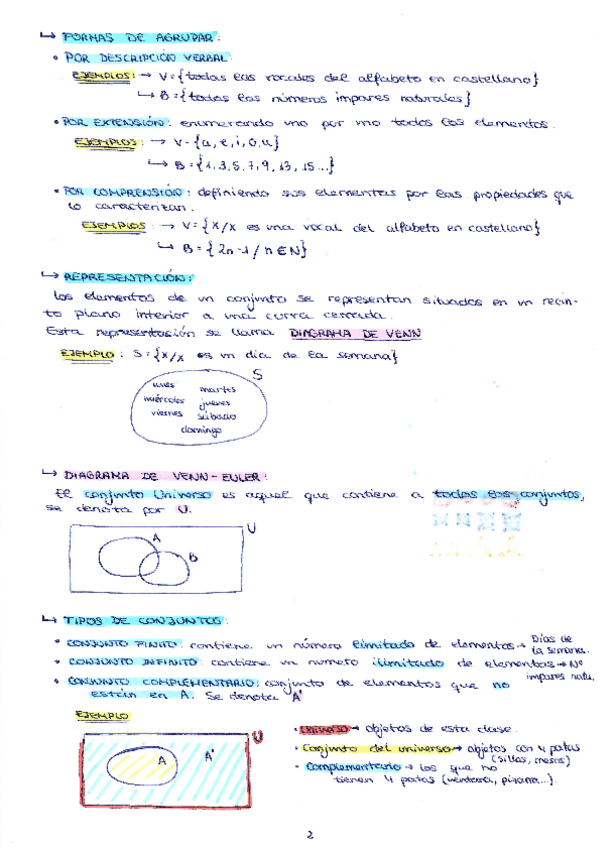 ↳ FORMAS DE AGRUPAR:
• POR DESCRIPCIÓN VERBAL:
EJEMPLOS: → V={todas las vocales del alfabeto en castellano}
↳ B={todos los números impares naturales}
• POR EXTENSIÓN: enumerando uno por uno todos los elementos.
EJEMPLOS: → V={a,e,i,o,u}
↳ B={1,3,5,7,9,13,15...}
• POR COMPRENSIÓN: definiendo sus elementos por las propiedades que
lo caracterizan.
EJEMPLOS: → V={x/x es una vocal del alfabeto en castellano}
↳ B={2n-1/n∈N}
↳ REPRESENTACIÓN:
Los elementos de un conjunto se representan situados en un recin-
to plano interior a una curva cerrada.
Esta representación se llama DIAGRAMA DE VENN
EJEMPLO: S={x/x es un día de la semana}
S
lunes martes
miércoles jueves
viernes sábado
domingo
↳ DIAGRAMA DE VENN-EULER:
El conjunto Universo es aquel que contiene a todos los conjuntos,
se denota por U.
U
A
B
↳ TIPOS DE CONJUNTOS:
• CONJUNTO FINITO: contiene un número limitado de elementos → Días de
la semana.
• CONJUNTO INFINITO: contiene un numero ilimitado de elementos → Nº
impares natu.
• CONJUNTO COMPLEMENTARIO: conjunto de elementos que no
están en A. Se denota A'
EJEMPLO
U
A A'
• UNIVERSO → objetos de esta clase.
• Conjunto del universo → objetos con 4 patas
(sillas, mesas)
• Complementario → los que no
tienen 4 patas (ventana, pizarra...).
2